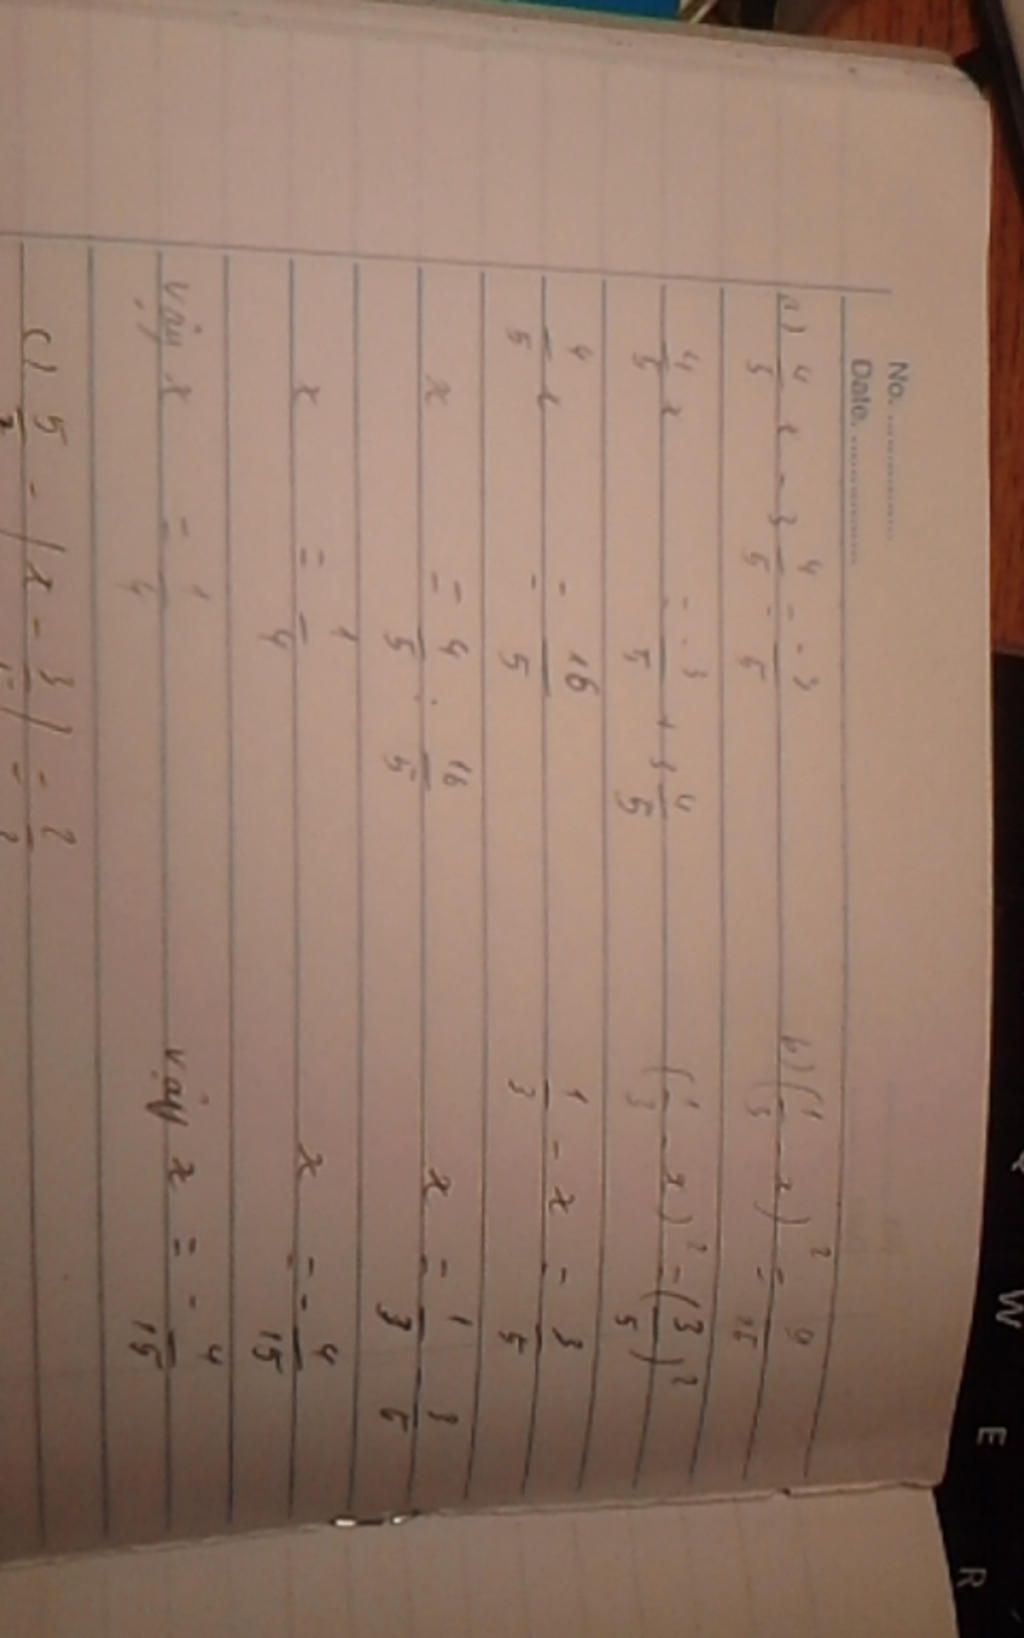 No. ..............
Date. ..............
a) 4/5 x - 3 4/5 = -3/5
4/5 x = -3/5 + 3 4/5
4/5 x = 16/5
x = 4/5 : 16/5
x = 1/4
vậy x = 1/4
b) (1/3 - x)² = 9/25
(1/3 - x)² = (3/5)²
1/3 - x = 3/5
x = 1/3 - 3/5
x = -4/15
vậy x = -4/15
c) 5/2 - |x - 3/
W
E
R